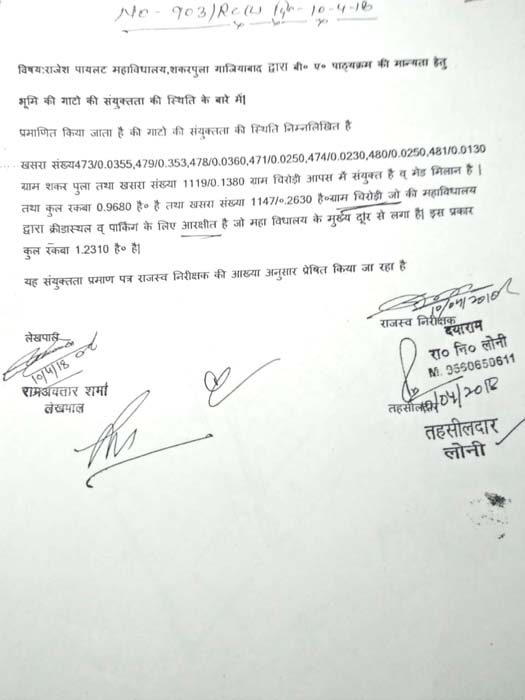 No - 903/RC(L) 10-4-18
विषय:राजेश पायलट महाविधालय,शकरपुला गाजियाबाद द्वारा बी० ए० पाठ्यक्रम की मान्यता हेतु
भूमि की गाटो की संयुक्तता की स्थिति के बारे में|
प्रमाणित किया जाता है की गाटो की संयुक्तता की स्थिति निम्नलिखित है
खसरा संख्य473/0.0355,479/0.353,478/0.0360,471/0.0250,474/0.0230,480/0.0250,481/0.0130
ग्राम शकर पुला तथा खसरा संख्या 1119/0.1380 ग्राम चिरोड़ी आपस में संयुक्त है व् मेड मिलान है |
तथा कुल रकबा 0.9680 है० है तथा खसरा संख्या 1147/०.2630 है०ग्राम चिरोड़ी जो की महाविधालय
द्वारा क्रीडास्थल व् पार्किंग के लिए आरक्षीत है जो महा विधालय के मुख्य दूार से लगा है| इस प्रकार
कुल रकबा 1.2310 है० है|
यह संयुक्तता प्रमाण पत्र राजस्व निरीक्षक की आख्या अनुसार प्रेषित किया जा रहा है
10/04/2018
राजस्व निरीक्षक
दयाराम
रा० नि० लोनी
M. 9560650611
लेखपाल
10/4/18
रामअवतार शर्मा
लेखपाल
तहसीलदार
/04/2018
तहसीलदार
लोनी